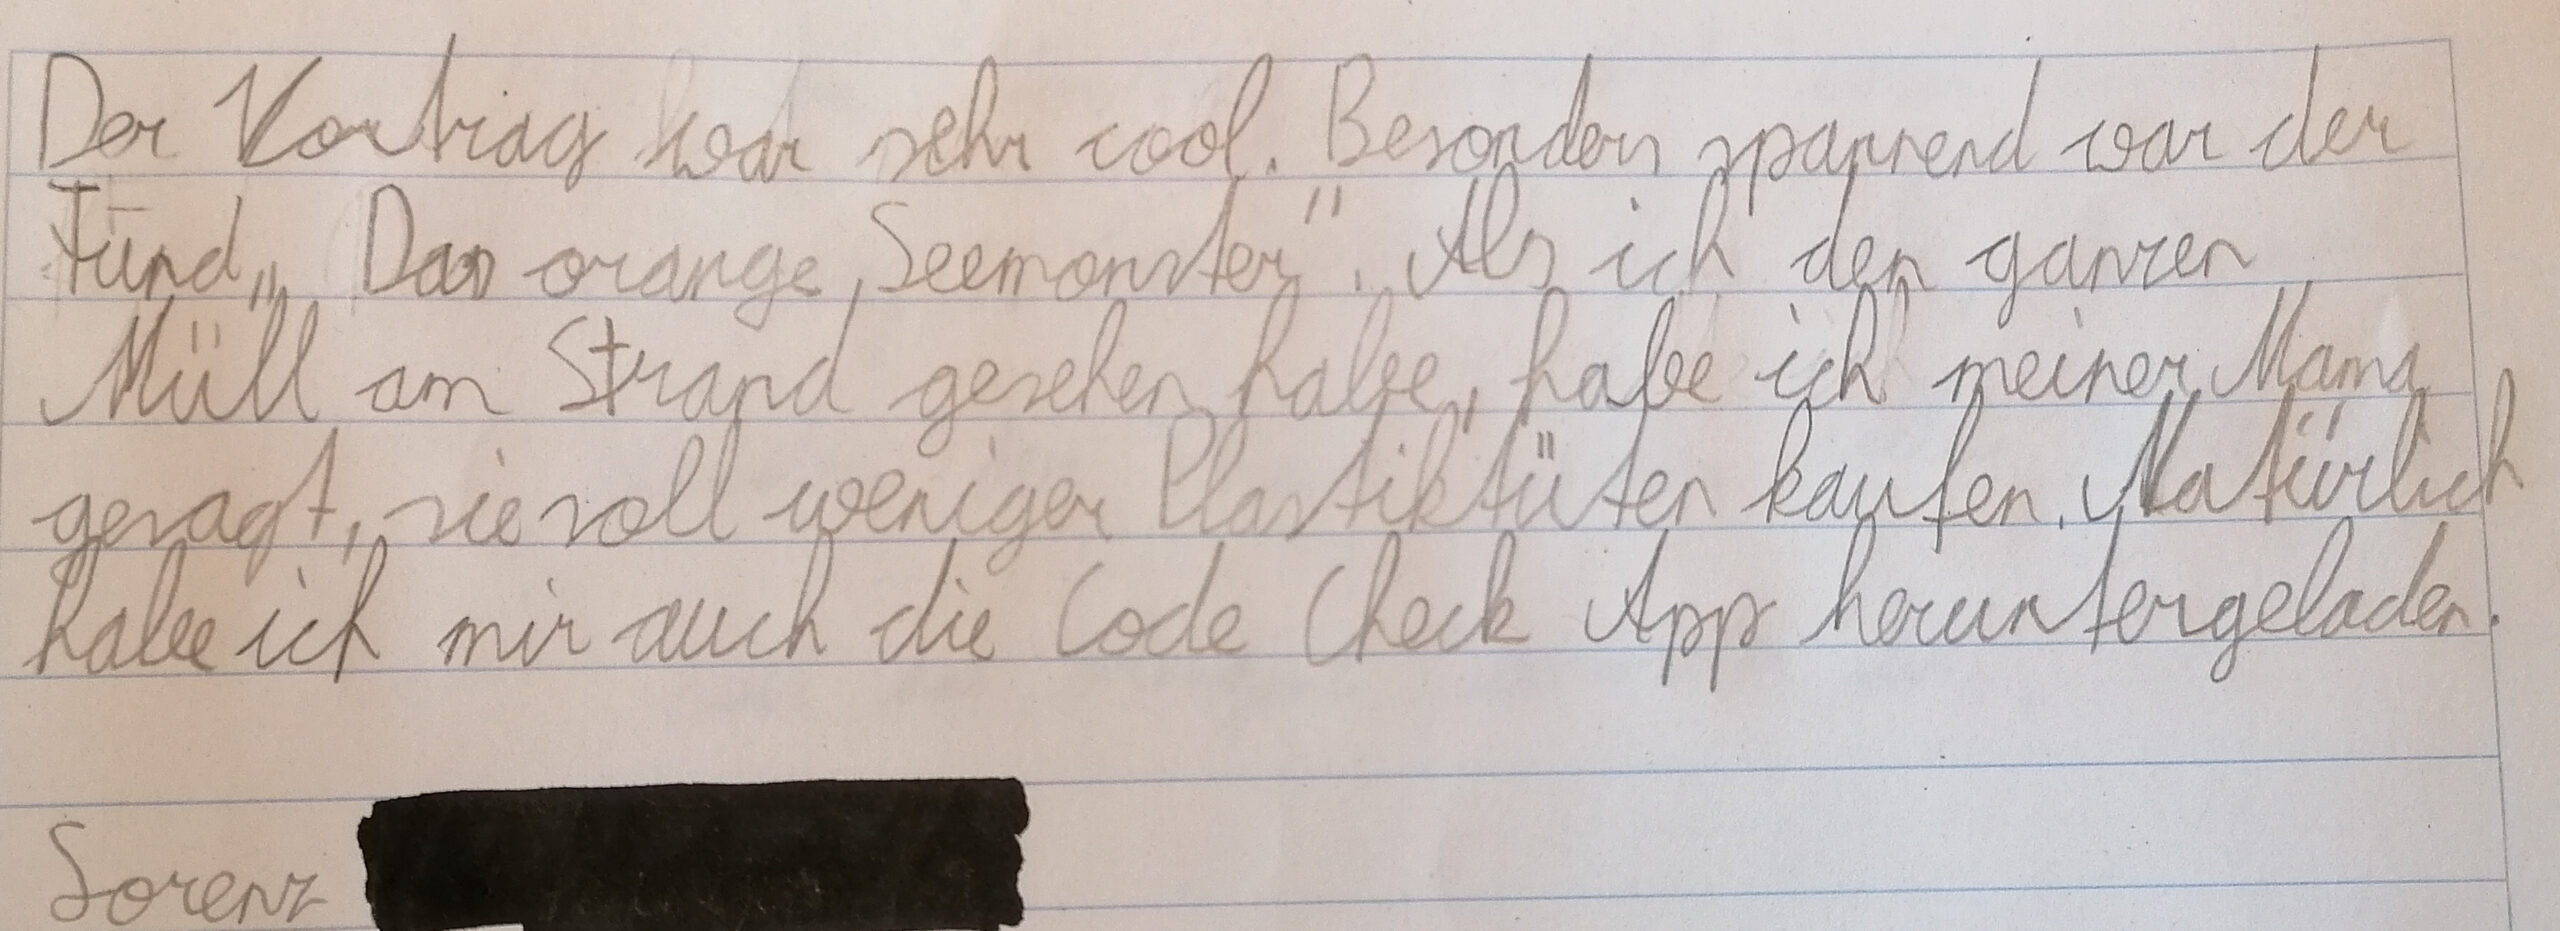 Der Vortrag war sehr cool. Besonders spannend war der
Fund „Das orange Seemonster". Als ich den ganzen
Müll am Strand gesehen habe, habe ich meiner Mama
gesagt, sie soll weniger Plastiktüten kaufen. Natürlich
habe ich mir auch die Code Check App heruntergeladen.
Lorenz